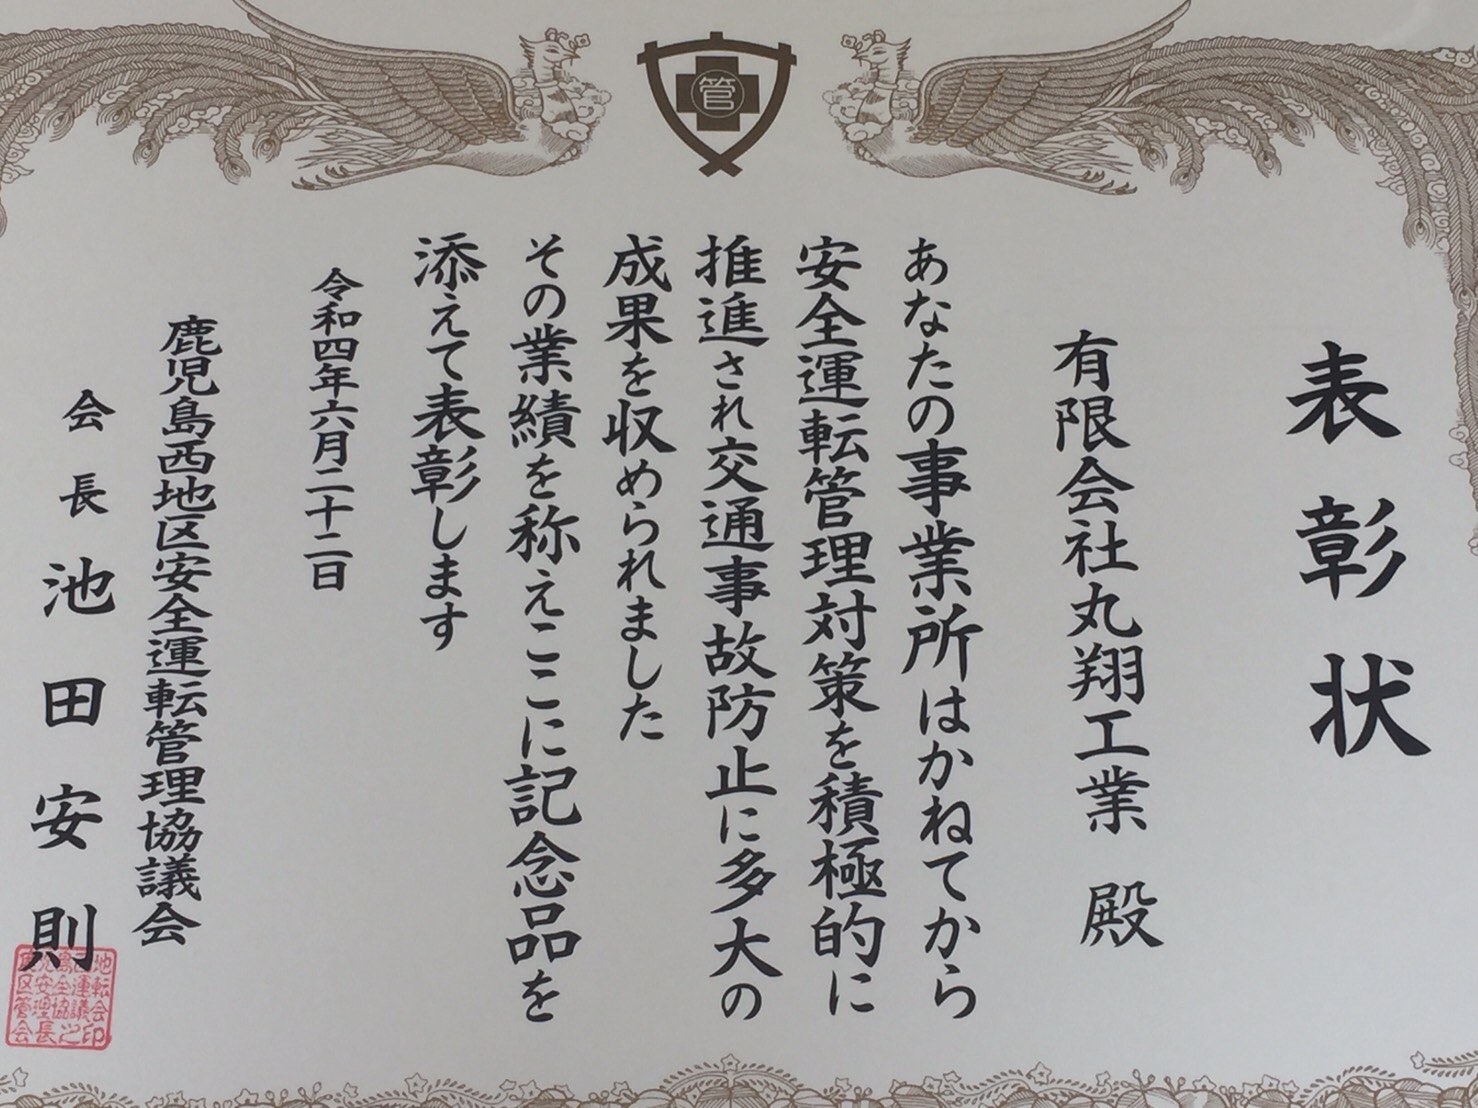 管
表彰状
有限会社丸翔工業 殿
あなたの事業所はかねてから
安全運転管理対策を積極的に
推進され交通事故防止に多大の
成果を収められました
その業績を称えここに記念品を
添えて表彰します
令和四年六月二十二日
鹿児島西地区安全運転管理協議会
会長 池田安則